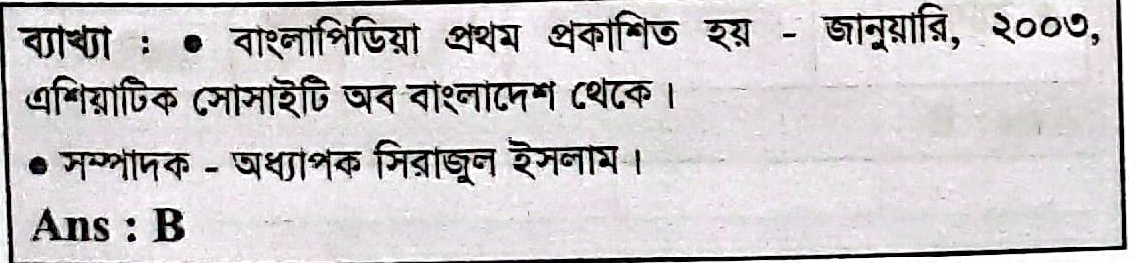 ব্যাখ্যা : ● বাংলাপিডিয়া প্রথম প্রকাশিত হয় - জানুয়ারি, ২০০৩,
এশিয়াটিক সোসাইটি অব বাংলাদেশ থেকে।
● সম্পাদক - অধ্যাপক সিরাজুল ইসলাম।
Ans : B